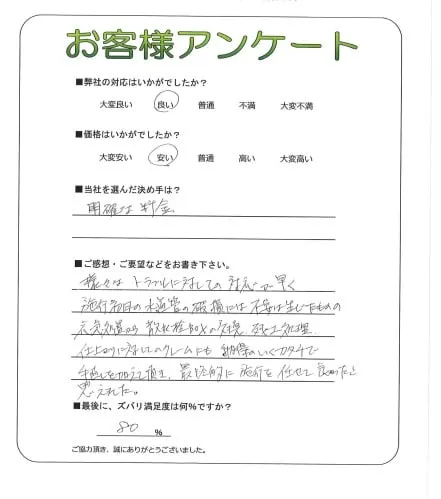 お客様アンケート
■弊社の対応はいかがでしたか？
大変良い 良い 普通 不満 大変不満
■価格はいかがでしたか？
大変安い 安い 普通 高い 大変高い
■当社を選んだ決め手は？
明確な料金
■ご感想・ご要望などをお書き下さい。
様々なトラブルに対しての対応が早く
施行初日の水道管の破損には不安は生じたものの
応急処置から散水栓BOXの交換、残土処理、
仕上りに対してのクレームにも納得のいくカタチで
手直しを加えて頂き、最終的に施行を任せて良かったと
思えました。
■最後に、ズバリ満足度は何%ですか？
80 %
ご協力頂き、誠にありがとうございました。